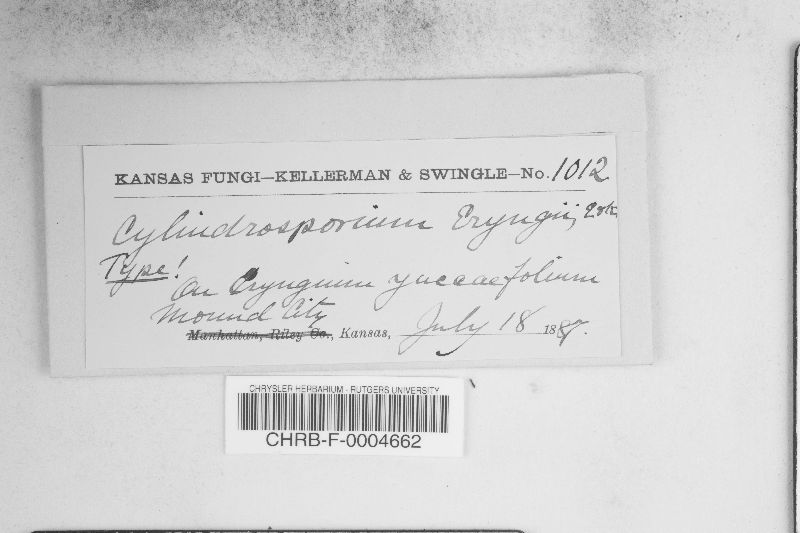 KANSAS FUNGI—KELLERMAN & SWINGLE—No. 1012
Cylindrosporium Eryngii, E & K
Type!
On Eryngium yuccaefolium
Mound City
Manhattan, Riley Co., Kansas, July 18 1887.
CHRYSLER HERBARIUM - RUTGERS UNIVERSITY
CHRB-F-0004662